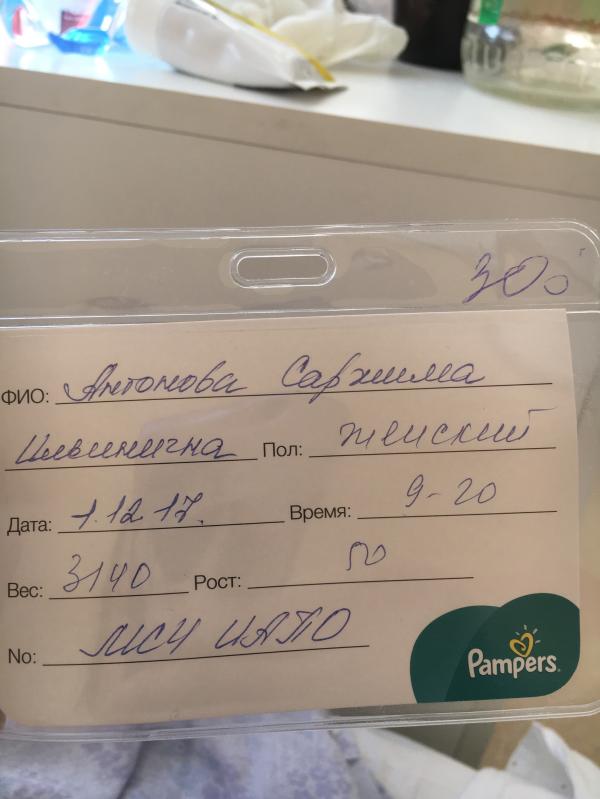 ФИО: Антонова Саржима
Ильинична Пол: женский
Дата: 1.12.17. Время: 9-20
Вес: 3140 Рост: 50
No: МСЧ ИАПО
Pampers